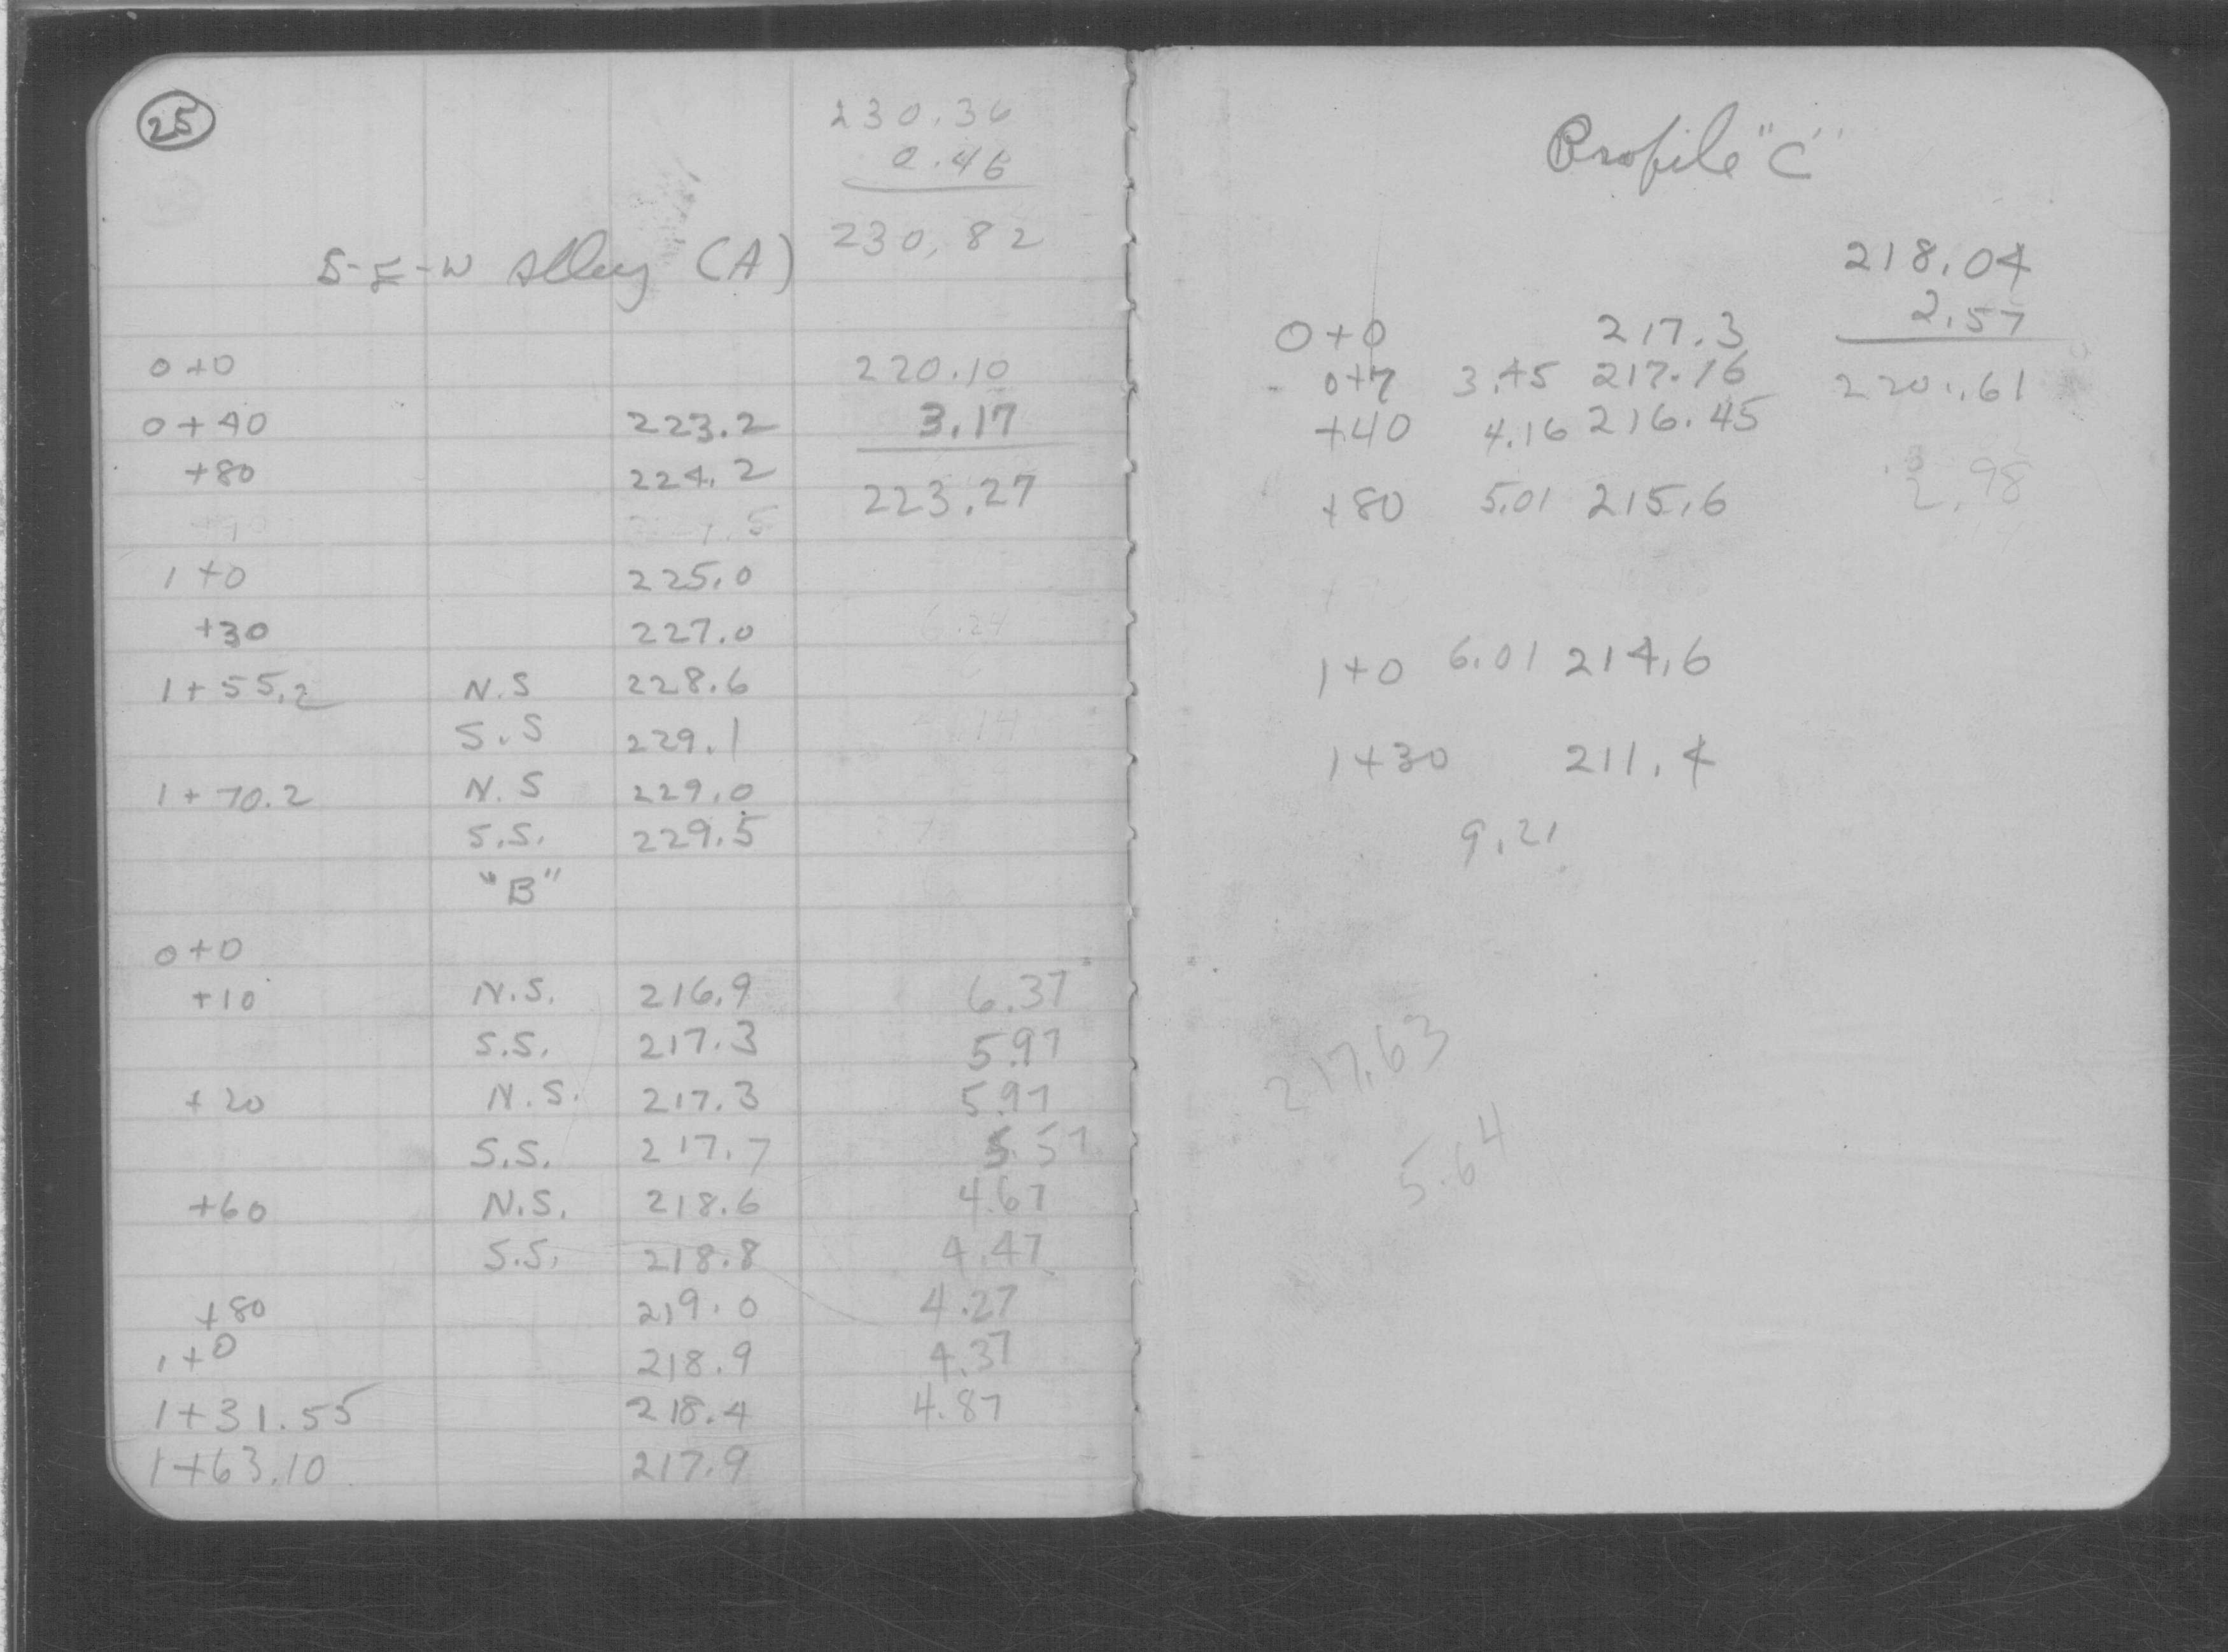 25
230.36
0.46
230.82
S-E-W Alley (A)
0+0 220.10
0+40 223.2 3.17
+80 224.2
223.27
1+0 225.0
+30 227.0
1+55.2 N.S 228.6
S.S 229.1
1+70.2 N.S 229.0
S.S. 229.5
"B"
0+0
+10 N.S. 216.9 6.37
S.S. 217.3 5.97
+20 N.S. 217.3 5.97
S.S. 217.7 5.57
+60 N.S. 218.6 4.67
S.S. 218.8 4.47
+80 219.0 4.27
1+0 218.9 4.37
1+31.55 218.4 4.87
1+63.10 217.9
Profile "C"
218.04
2.57
0+0 217.3
0+7 3.45 217.16 220.61
+40 4.16 216.45
2.98
+80 5.01 215.6
1+0 6.01 214.6
1+30 211.4
9.21
217.63
5.64